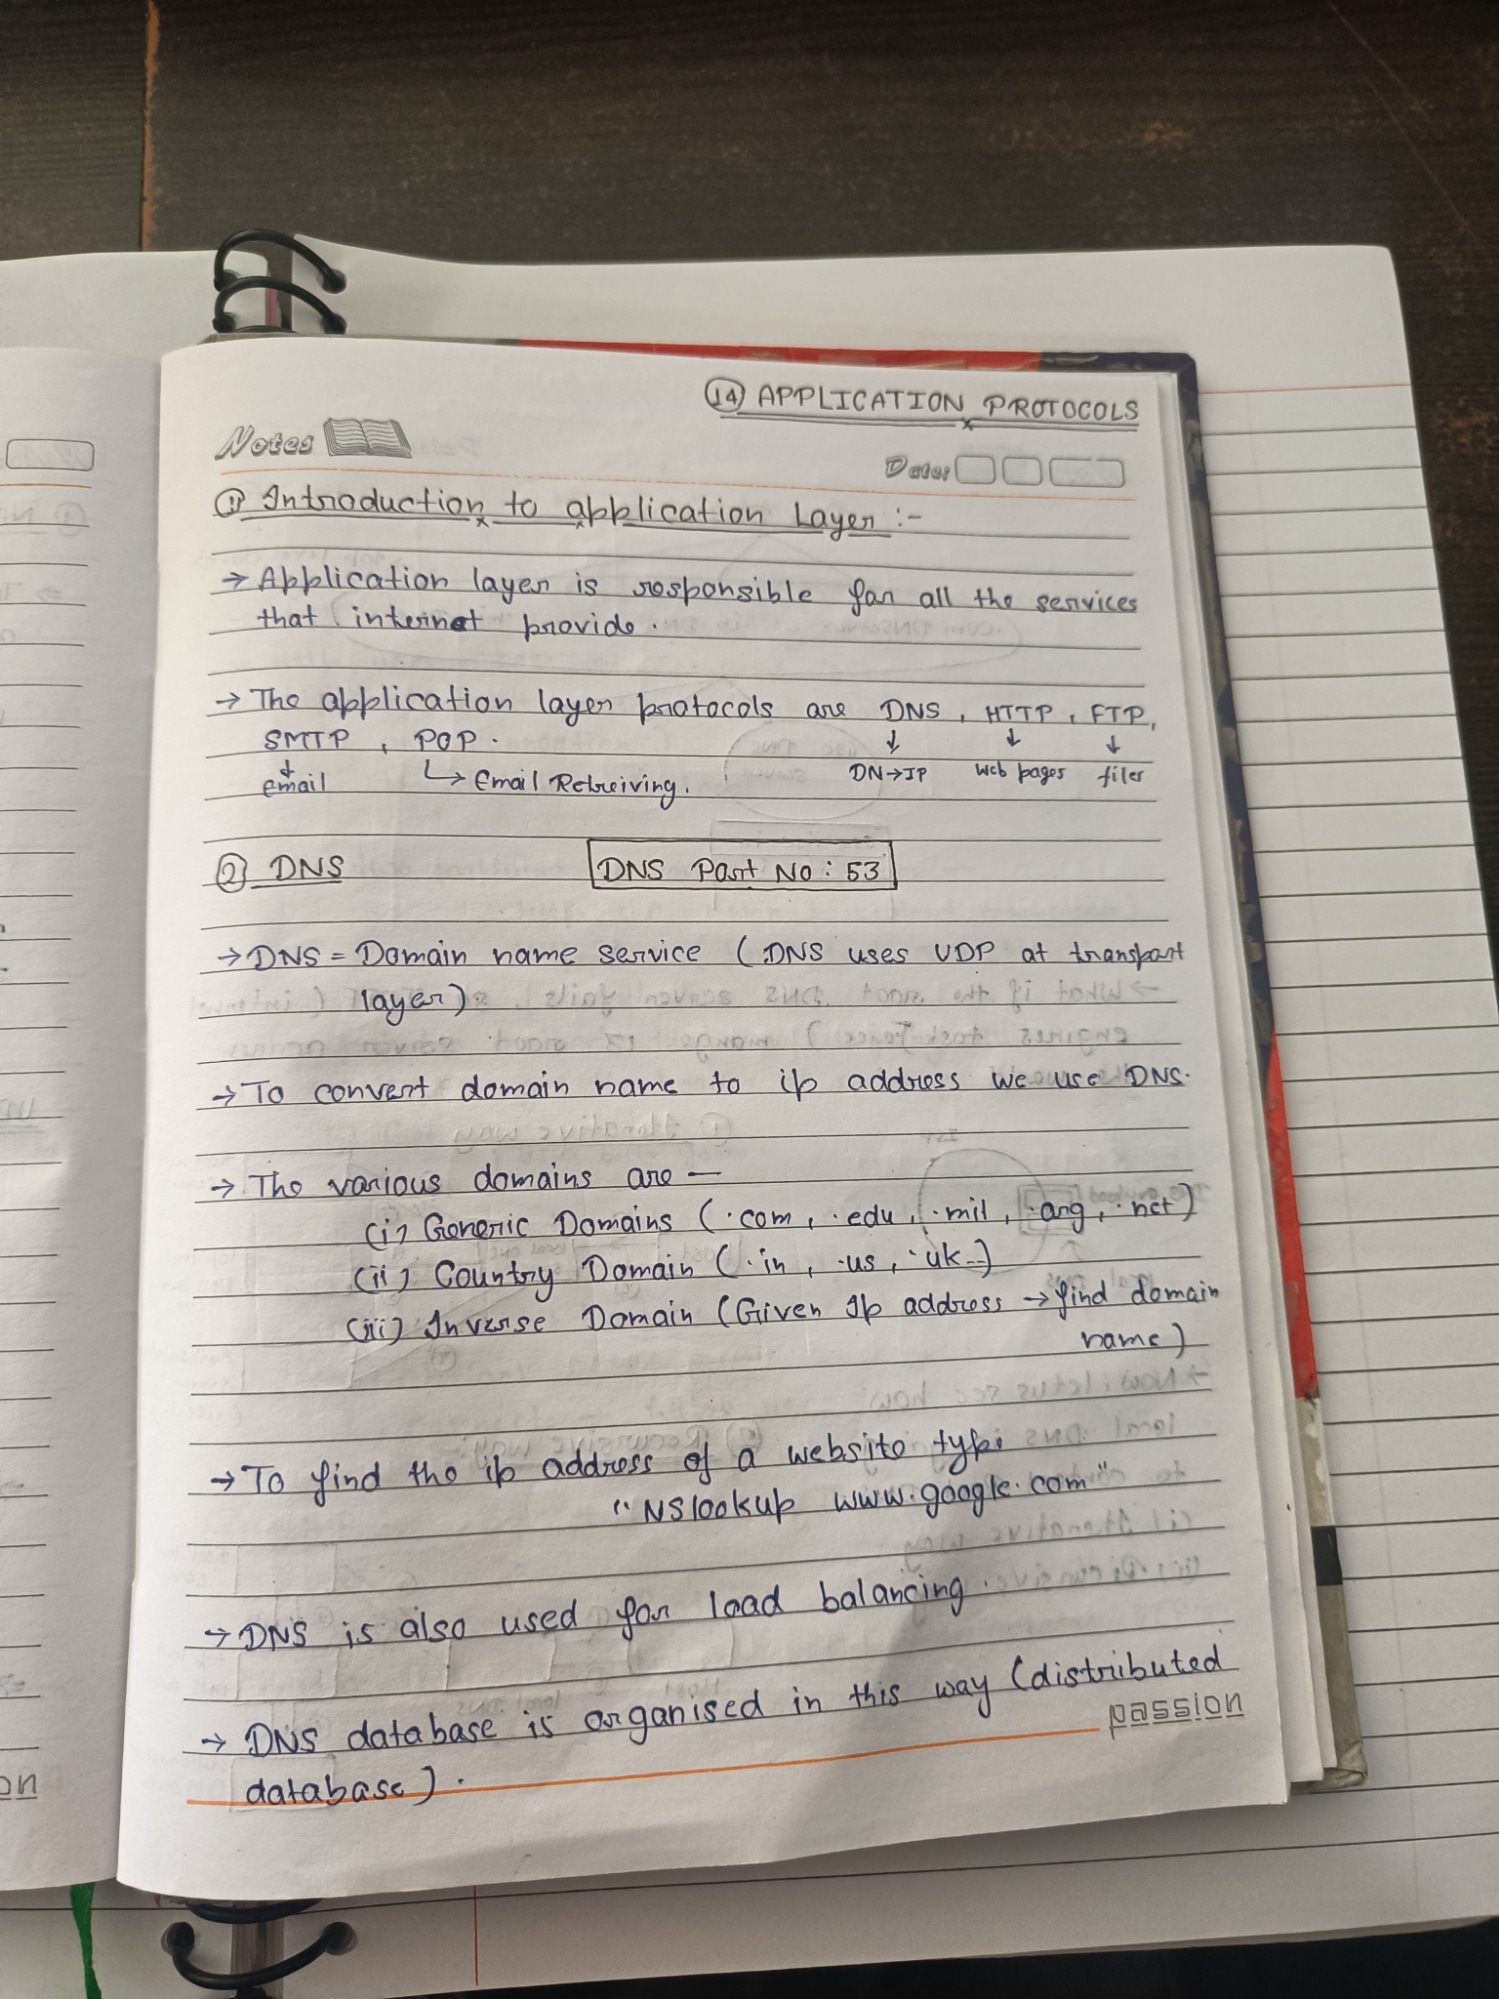 (14) APPLICATION PROTOCOLS
Notes
Date:
(1) Introduction to application Layer :-
→ Application layer is responsible for all the services
that internet provide.
→ The application layer protocols are DNS, HTTP, FTP,
SMTP, POP.
↓ ↓ ↓
DN→IP Web pages files
↓ email
↳ Email Retreiving.
(2) DNS
DNS Port No: 53
→ DNS = Domain name service (DNS uses UDP at transport
layer).
→ To convert domain name to ip address we use DNS.
→ The various domains are —
(i) Generic Domains (.com, .edu, .mil, .org, .net)
(ii) Country Domain (.in, .us, .uk..)
(iii) Inverse Domain (Given Ip address → find domain
name)
→ To find the ip address of a website type
"NSlookup www.google.com"
→ DNS is also used for load balancing.
→ DNS database is organised in this way (distributed
database).
passion
on